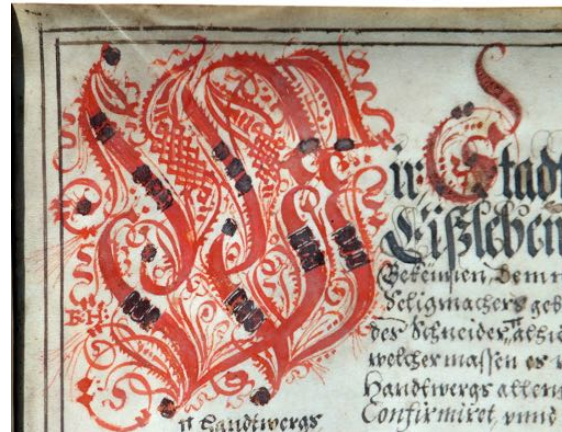 Wir: Stadt
Eißleben
Bekennen, Dem
Seligmachers geb
der Schneider, alhie
welcher massen es
Handtwergs
Confirmiret, vnnd
B:H:
n Handtwergs